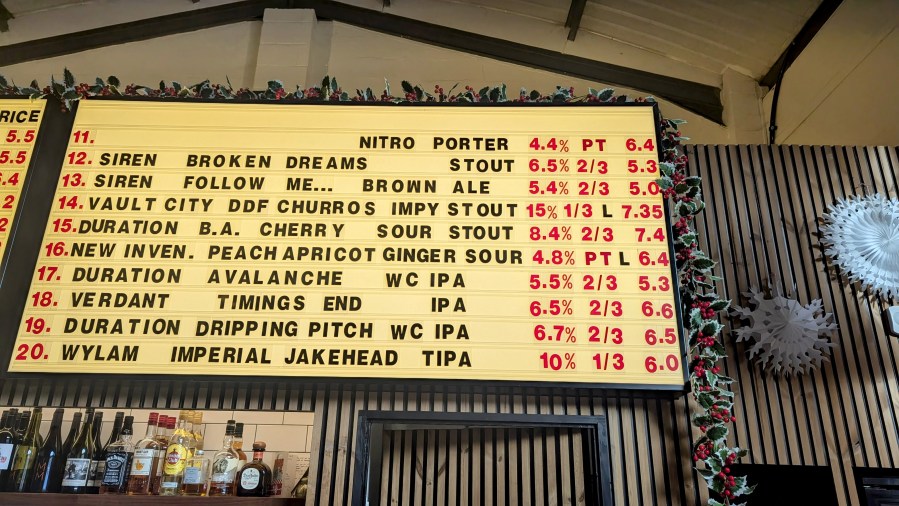 RICE
5.5
5.5
6.4
2
2
11. NITRO PORTER 4.4% PT 6.4
12. SIREN BROKEN DREAMS STOUT 6.5% 2/3 5.3
13. SIREN FOLLOW ME... BROWN ALE 5.4% 2/3 5.0
14. VAULT CITY DDF CHURROS IMPY STOUT 15% 1/3 L 7.35
15. DURATION B.A. CHERRY SOUR STOUT 8.4% 2/3 7.4
16. NEW INVEN. PEACH APRICOT GINGER SOUR 4.8% PT L 6.4
17. DURATION AVALANCHE WC IPA 5.5% 2/3 5.3
18. VERDANT TIMINGS END IPA 6.5% 2/3 6.6
19. DURATION DRIPPING PITCH WC IPA 6.7% 2/3 6.5
20. WYLAM IMPERIAL JAKEHEAD TIPA 10% 1/3 6.0